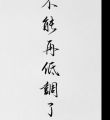 不能再低調了